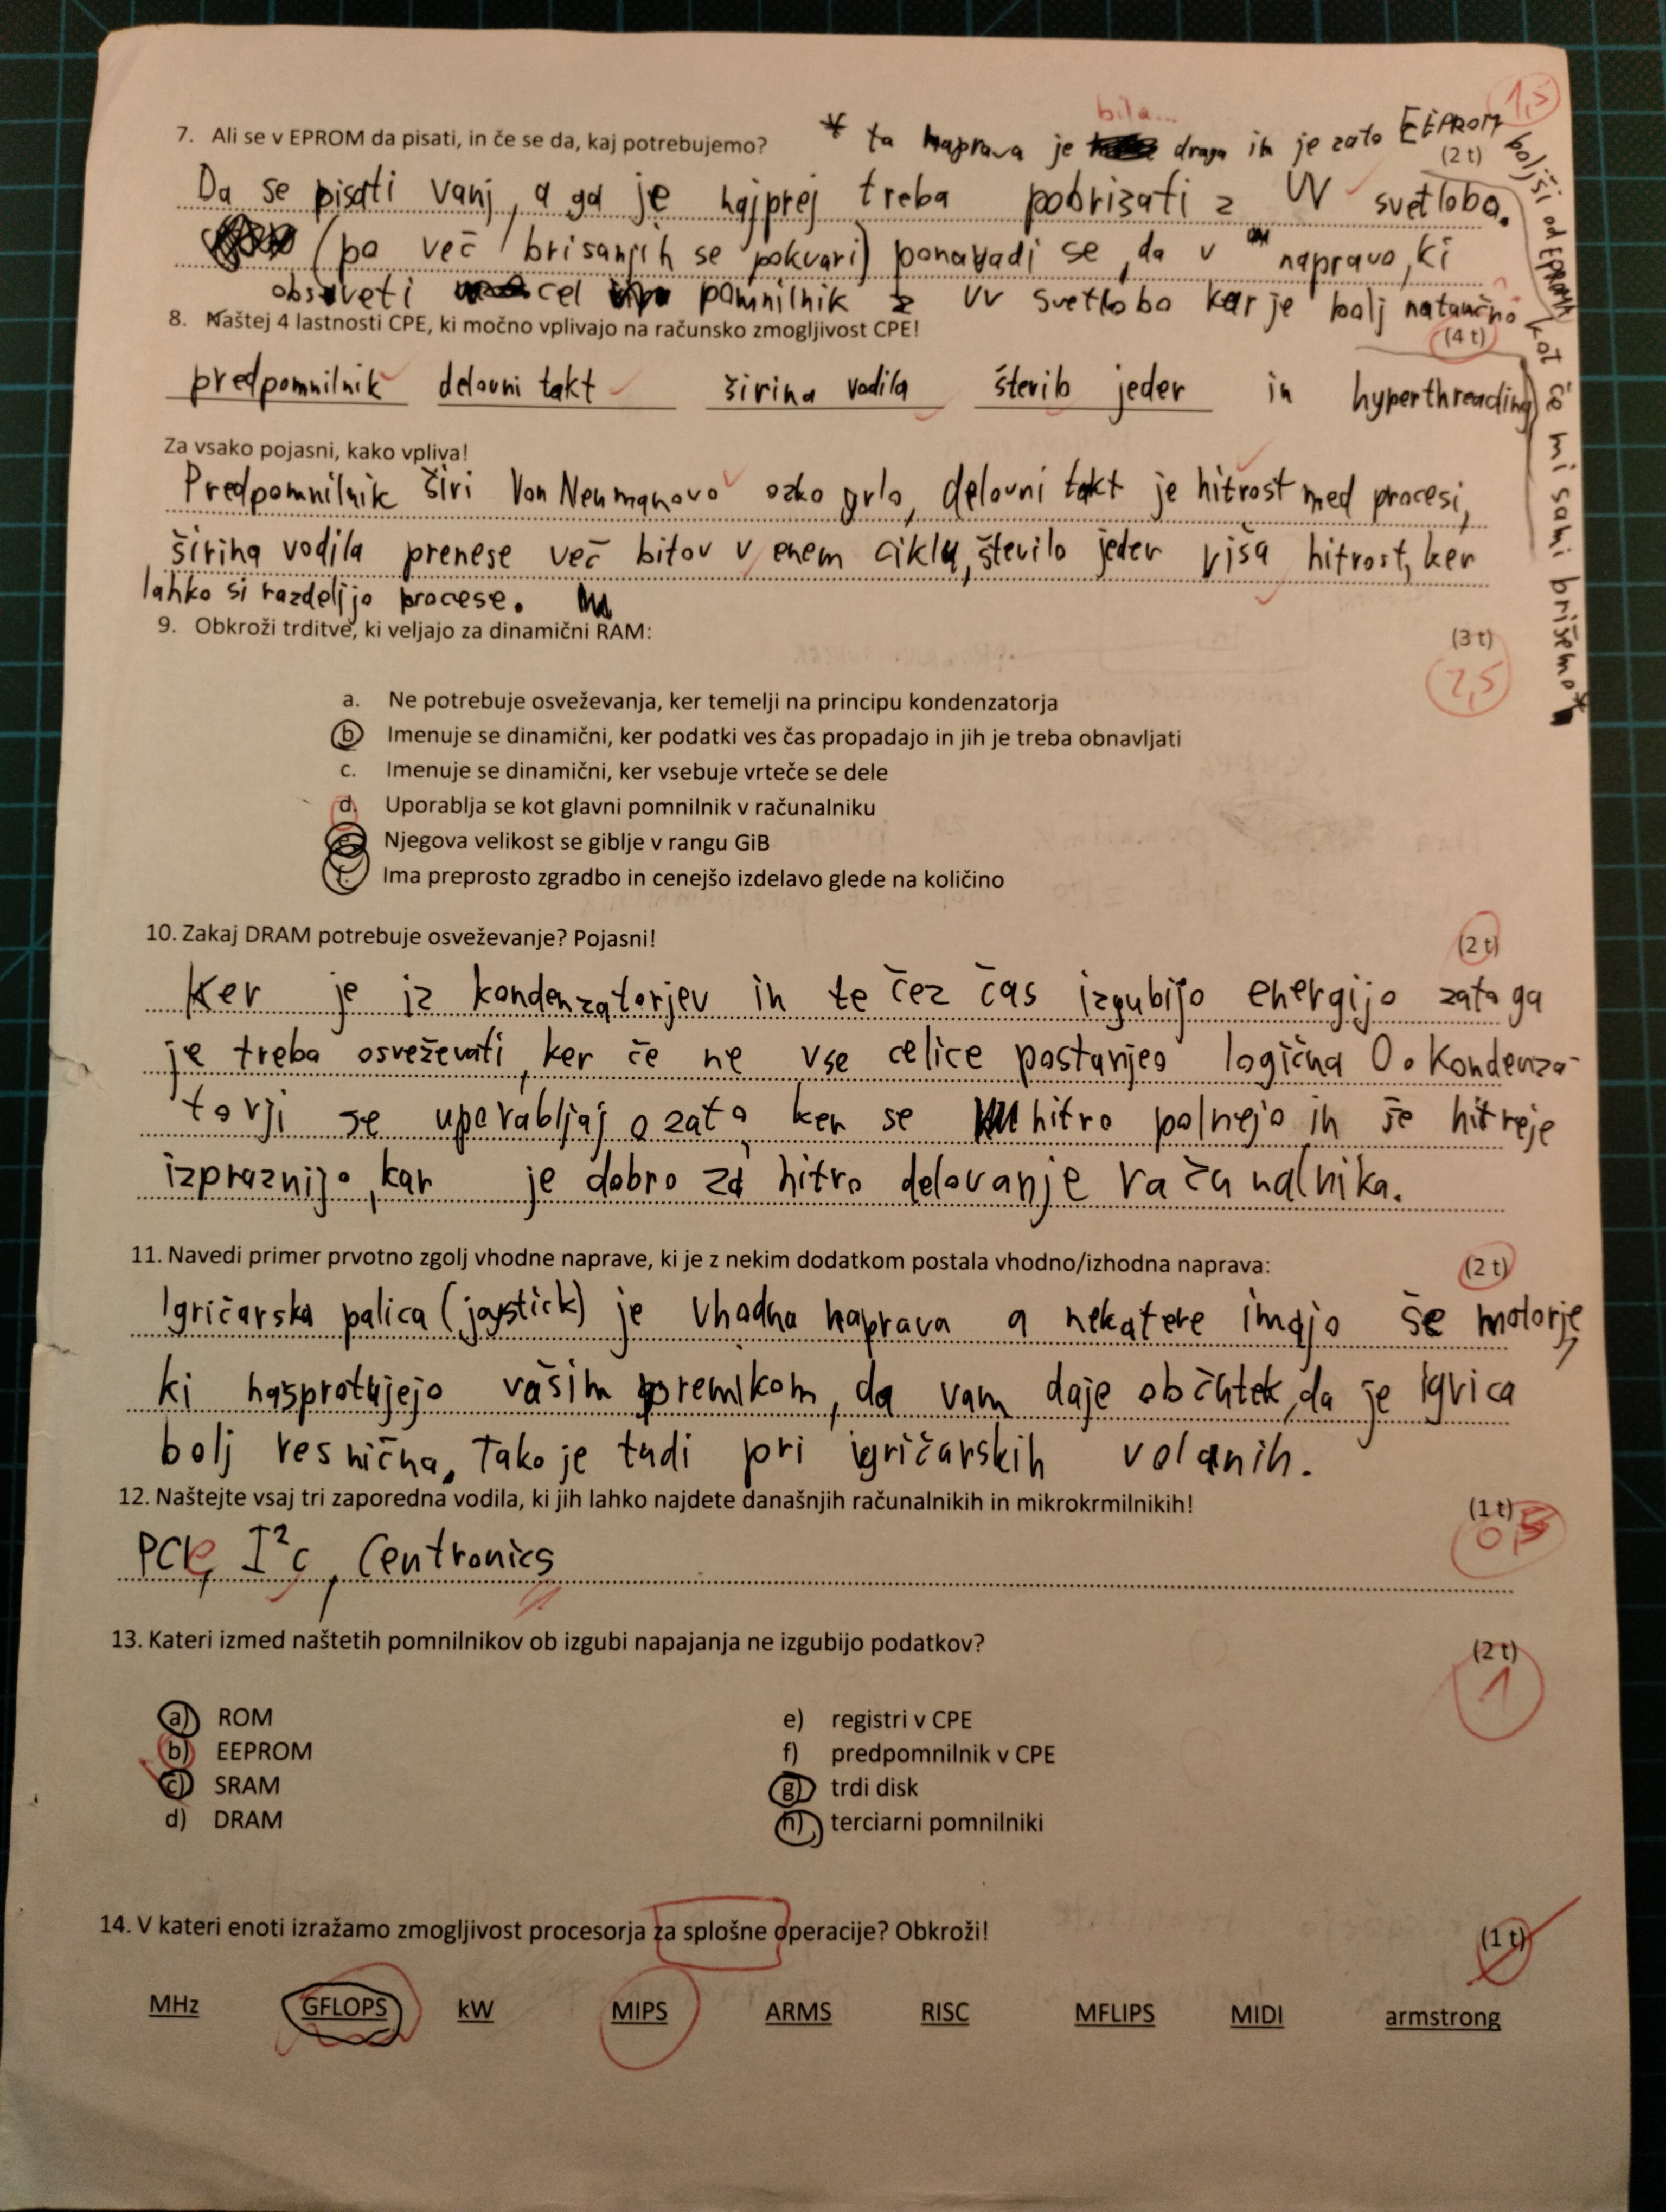 1,5
bila...
7. Ali se v EPROM da pisati, in če se da, kaj potrebujemo?
* ta naprava je draga in je zato EEPROM
(2 t)
boljši od EPROM kot če mi sami brišemo*
Da se pisati vanj, a ga je najprej treba pobrisati z UV svetlobo.
(po več brisanjih se pokvari) ponavadi se da v napravo, ki
obsveti cel pomnilnik z UV svetlobo kar je bolj natančno
8. Naštej 4 lastnosti CPE, ki močno vplivajo na računsko zmogljivost CPE!
(4 t)
predpomnilnik delovni takt širina vodila število jeder in hyperthreading
Za vsako pojasni, kako vpliva!
Predpomnilnik širi Von Neumanovo ozko grlo, delovni takt je hitrost med procesi,
širina vodila prenese več bitov v enem ciklu, število jeder viša hitrost, ker
lahko si razdelijo procese.
9. Obkroži trditve, ki veljajo za dinamični RAM:
(3 t)
2,5
a. Ne potrebuje osveževanja, ker temelji na principu kondenzatorja
b Imenuje se dinamični, ker podatki ves čas propadajo in jih je treba obnavljati
c. Imenuje se dinamični, ker vsebuje vrteče se dele
d. Uporablja se kot glavni pomnilnik v računalniku
Njegova velikost se giblje v rangu GiB
f. Ima preprosto zgradbo in cenejšo izdelavo glede na količino
10. Zakaj DRAM potrebuje osveževanje? Pojasni!
(2 t)
Ker je iz kondenzatorjev in te čez čas izgubijo energijo zato ga
je treba osveževati, ker če ne vse celice postanjeo logična 0. Kondenza-
torji se uporabljajo zato, ker se hitro polnejo in še hitreje
izpraznijo, kar je dobro za hitro delovanje računalnika.
11. Navedi primer prvotno zgolj vhodne naprave, ki je z nekim dodatkom postala vhodno/izhodna naprava:
(2 t)
Igričarska palica (joystick) je vhodna naprava a nekatere imajo še motorje,
ki nasprotujejo vašim premikom, da vam daje občutek, da je igrica
bolj resnična. Tako je tudi pri igričarskih volanih.
12. Naštejte vsaj tri zaporedna vodila, ki jih lahko najdete današnjih računalnikih in mikrokrmilnikih!
(1 t)
PCIe, I²C, Centronics
13. Kateri izmed naštetih pomnilnikov ob izgubi napajanja ne izgubijo podatkov?
(2 t)
1
a) ROM
b) EEPROM
c) SRAM
d) DRAM
e) registri v CPE
f) predpomnilnik v CPE
g) trdi disk
h) terciarni pomnilniki
14. V kateri enoti izražamo zmogljivost procesorja za splošne operacije? Obkroži!
(1 t)
MHz GFLOPS kW MIPS ARMS RISC MFLIPS MIDI armstrong